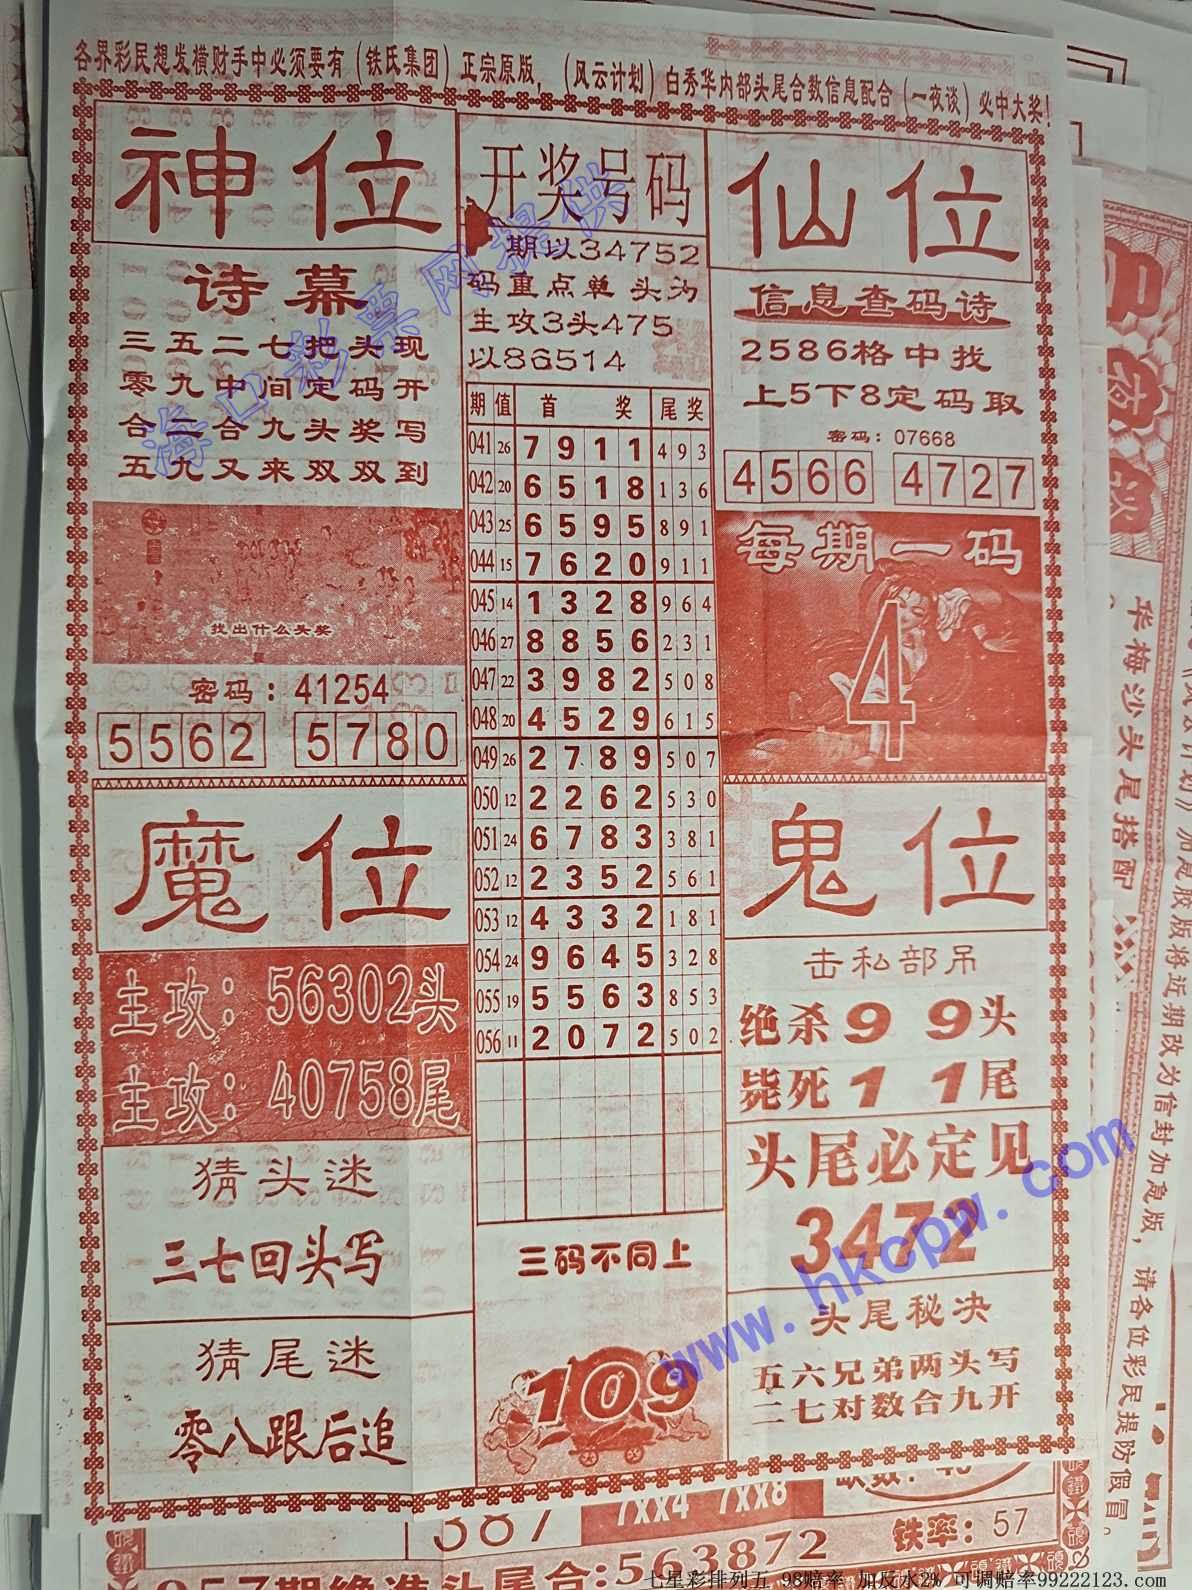 各界彩民想发横财手中必须要有（铁氏集团）正宗原版，（风云计划）白秀华内部头尾合数信息配合（一夜谈）必中大奖！
神位
诗幕
三五二七把头现
零九中间定码开
合二合九头奖写
五九又来双双到
找出什么头奖
密码：41254
5562 5780
开奖号码
期以34752
码重点单头为
主攻3头475
以86514
期 值 首奖 尾奖
041 26 7 9 1 1 4 9 3
042 20 6 5 1 8 1 3 6
043 25 6 5 9 5 8 9 1
044 15 7 6 2 0 9 1 1
045 14 1 3 2 8 9 6 4
046 27 8 8 5 6 2 3 1
047 22 3 9 8 2 5 0 8
048 20 4 5 2 9 6 1 5
049 26 2 7 8 9 5 0 7
050 12 2 2 6 2 5 3 0
051 24 6 7 8 3 3 8 1
052 12 2 3 5 2 5 6 1
053 12 4 3 3 2 1 8 1
054 24 9 6 4 5 3 2 8
055 19 5 5 6 3 8 5 3
056 11 2 0 7 2 5 0 2
三码不同上
109
仙位
信息查码诗
2586格中找
上5下8定码取
密码：07668
4566 4727
每期一码
4
魔位
主攻：56302头
主攻：40758尾
猜头迷
三七回头写
猜尾迷
零八跟后追
鬼位
击私部吊
绝杀99头
毙死11尾
头尾必定见
3472
头尾秘决
五六兄弟两头写
二七对数合九开
华梅沙头尾搭配
加息胶版将近期改为信封加息版，请各位彩民提防假冒。
7xx4 7xx8
387
铁率：57
057期绝准头尾合：563872
海口彩票网提供
www.hkcpw.com
七星彩排列五 98赔率 加反水2% 可调赔率99222123.com